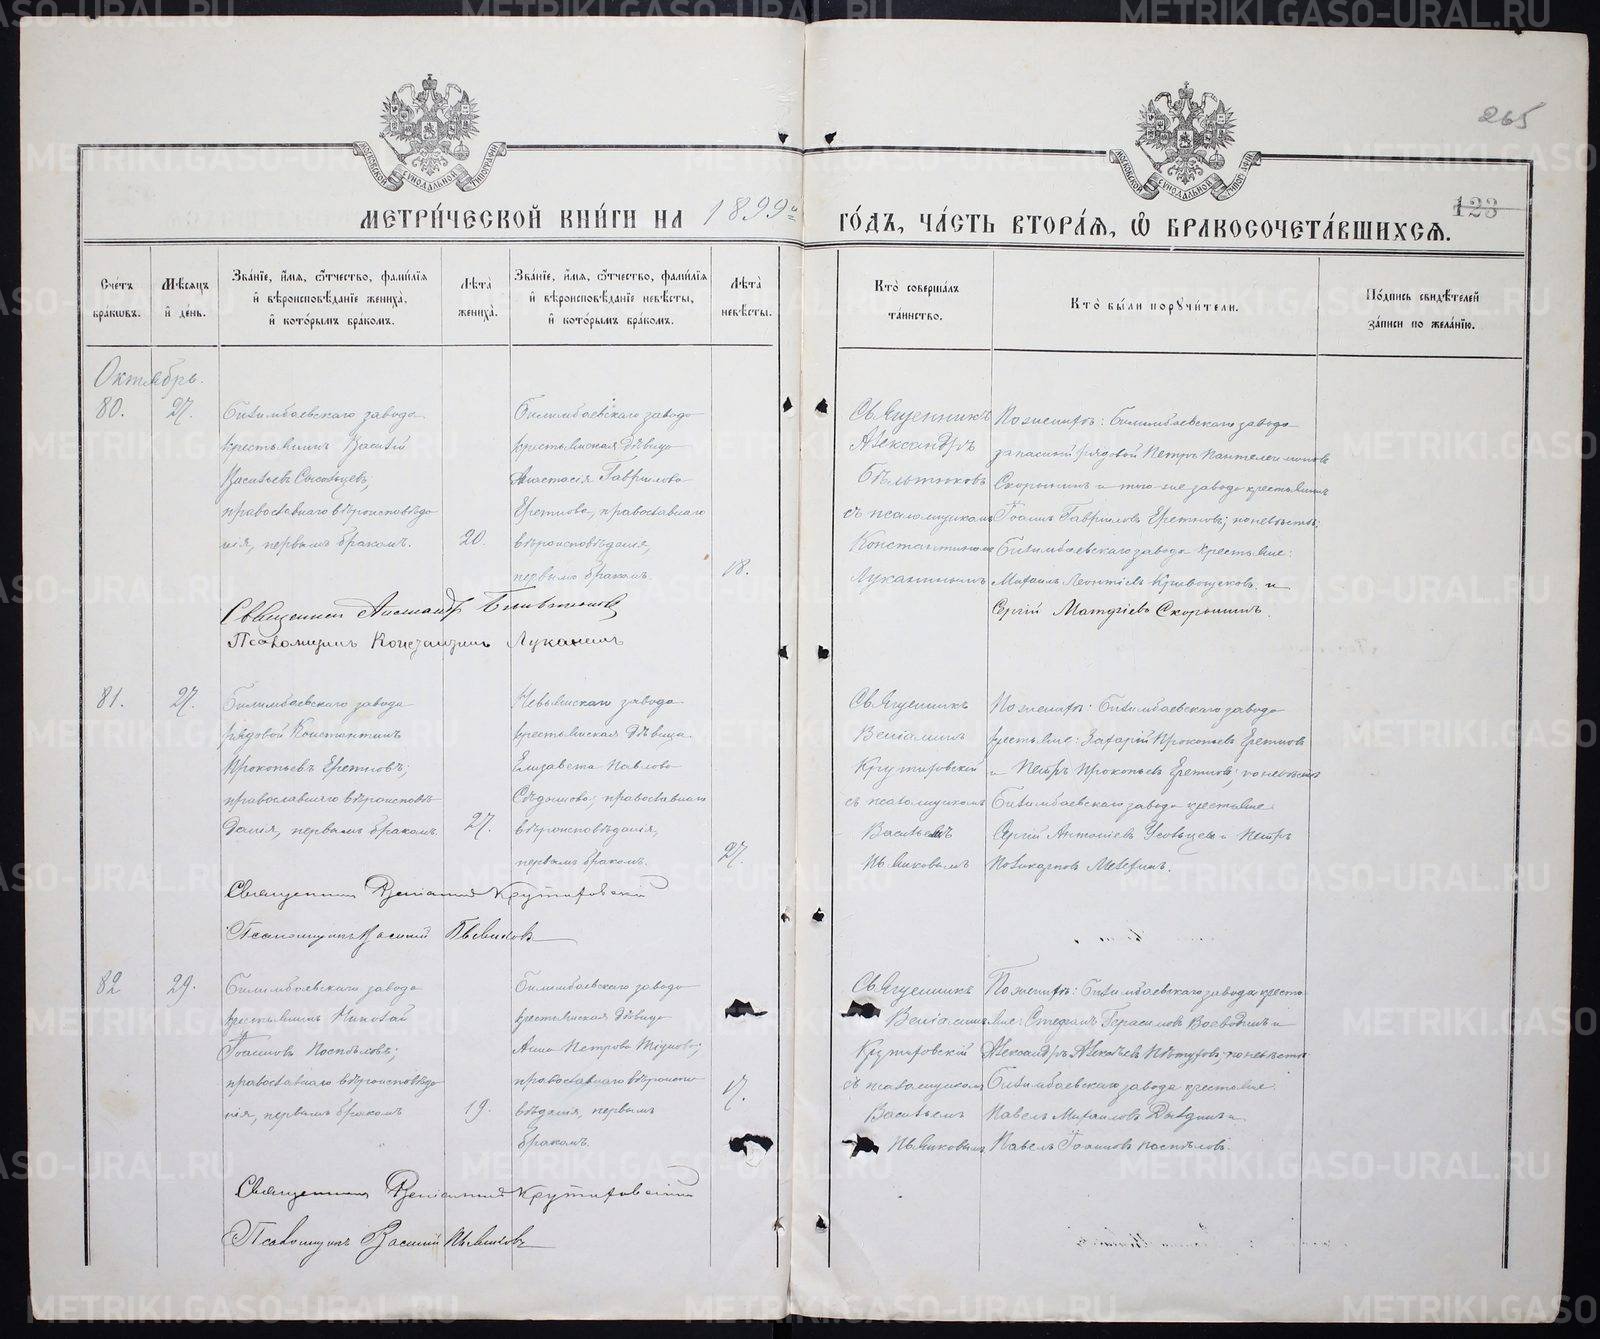 265
123
МОСКОВСКОЙ СУНОДАЛЬНОЙ ТИПОГРАФІИ
МОСКОВСКОЙ СУНОДАЛЬНОЙ ТИПОГРАФІИ
МЕТРИ́ЧЕСКОЙ КНИ́ГИ НА 1899й ГО́ДЪ, ЧА́СТЬ ВТОРА́Я, Ѡ҆ БРАКОСОЧЕТА́ВШИХСЯ.
Сче́тъ бра́кѡвъ.
Мѣ́сяцъ и҆ де́нь.
Зва́нїе, и҆́мя, ѻ҆́тчество, фамилїя и҆ вѣроисповѣ́данїе жениха̀, и҆ кото́рымъ бра́комъ.
Лѣ́та жениха̀.
Зва́нїе, и҆́мя, ѻ҆́тчество, фамилїя и҆ вѣроисповѣ́данїе невѣ́сты, и҆ кото́рымъ бра́комъ.
Лѣ́та невѣ́сты.
Кто̀ соверша́лъ та́инство.
Кто̀ бы́ли пору́чители.
По́дпись свидѣ́телей за́писи по жела́нїю.
Октябрь.
80.
27.
Билимбаевскаго завода
крестьянинъ Василій
Васильевъ
православнаго вѣроисповѣда
нія, первымъ бракомъ.
20.
Билимбаевскаго завода
крестьянская дѣвица
Анастасія Гаврилова
Еретнова, православнаго
вѣроисповѣданія,
первымъ бракомъ.
18.
Священникъ
Александръ
Бѣльтюковъ
съ псаломщикомъ
Константиномъ
Луканинымъ
По женихѣ: Билимбаевскаго завода
запасной рядовой Петръ Пантелеимоновъ
Скорынинъ и того-же завода крестьянинъ
Іоаннъ Гавриловъ Еретновъ; по невѣстѣ:
Билимбаевскаго завода крестьяне:
Михаилъ Леонтіевъ Кривощековъ и
Сергій Матѳіевъ Скорынинъ.
Священникъ Александръ Бѣльтюковъ
Псаломщикъ Константинъ Луканинъ
81.
27.
Билимбаевскаго завода
рядовой Константинъ
Прокопьевъ Еретновъ;
православнаго вѣроисповѣ
данія, первымъ бракомъ.
27.
Невьянскаго завода
крестьянская дѣвица
Елизавета Павлова
православнаго
вѣроисповѣданія,
первымъ бракомъ.
27.
Священникъ
Веніаминъ
Крутировскій
съ псаломщикомъ
Васильемъ
Пьянковымъ
По женихѣ: Билимбаевскаго завода
крестьяне: Захарій Прокопьевъ Еретновъ
и Петръ Прокопьевъ Еретновъ; по невѣстѣ
Билимбаевскаго завода крестьяне
Сергій Антоніевъ и Петръ
Поликарповъ
Священникъ Веніаминъ Крутировскій
Псаломщикъ Василій Пьянковъ
82
29.
Билимбаевскаго завода
крестьянинъ Николай
Іоанновъ Поспѣловъ;
православнаго вѣроисповѣда
нія, первымъ бракомъ
19.
Билимбаевскаго завода
крестьянская дѣвица
Анна Петрова
православнаго вѣроиспо
вѣданія, первымъ
бракомъ.
17.
Священникъ
Веніаминъ
Крутировскій
съ псаломщикомъ
Васильемъ
Пьянковымъ
По женихѣ: Билимбаевскаго завода кресть
яне: Стефанъ Герасимовъ Воеводинъ и
Александръ Алексѣевъ по невѣстѣ
Билимбаевскаго завода крестьяне:
Павелъ Михаиловъ и
Павелъ Іоанновъ Поспѣловъ.
Священникъ Веніаминъ Крутировскій
Псаломщикъ Василій Пьянковъ
METRIKI.GASO-URAL.RU